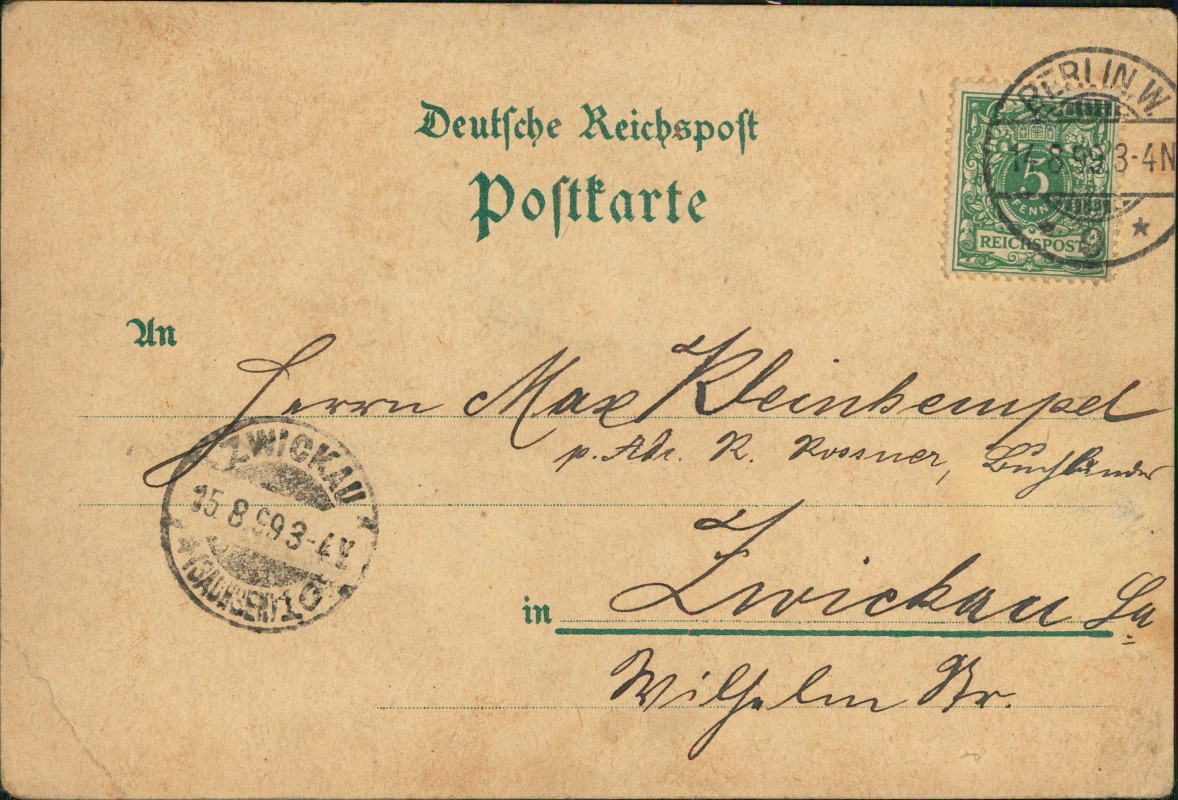 Deutsche Reichspost
Postkarte
BERLIN W.
14.8.99 3-4N
9
5
PFENNIG
REICHSPOST
An
Herrn Max Kleinhempel
p. Adr. R. Rossner, Buchbinder
ZWICKAU
15.8.99 3-4V
(SACHSEN) 1
in Zwickau Sa
Wilhelm Str.